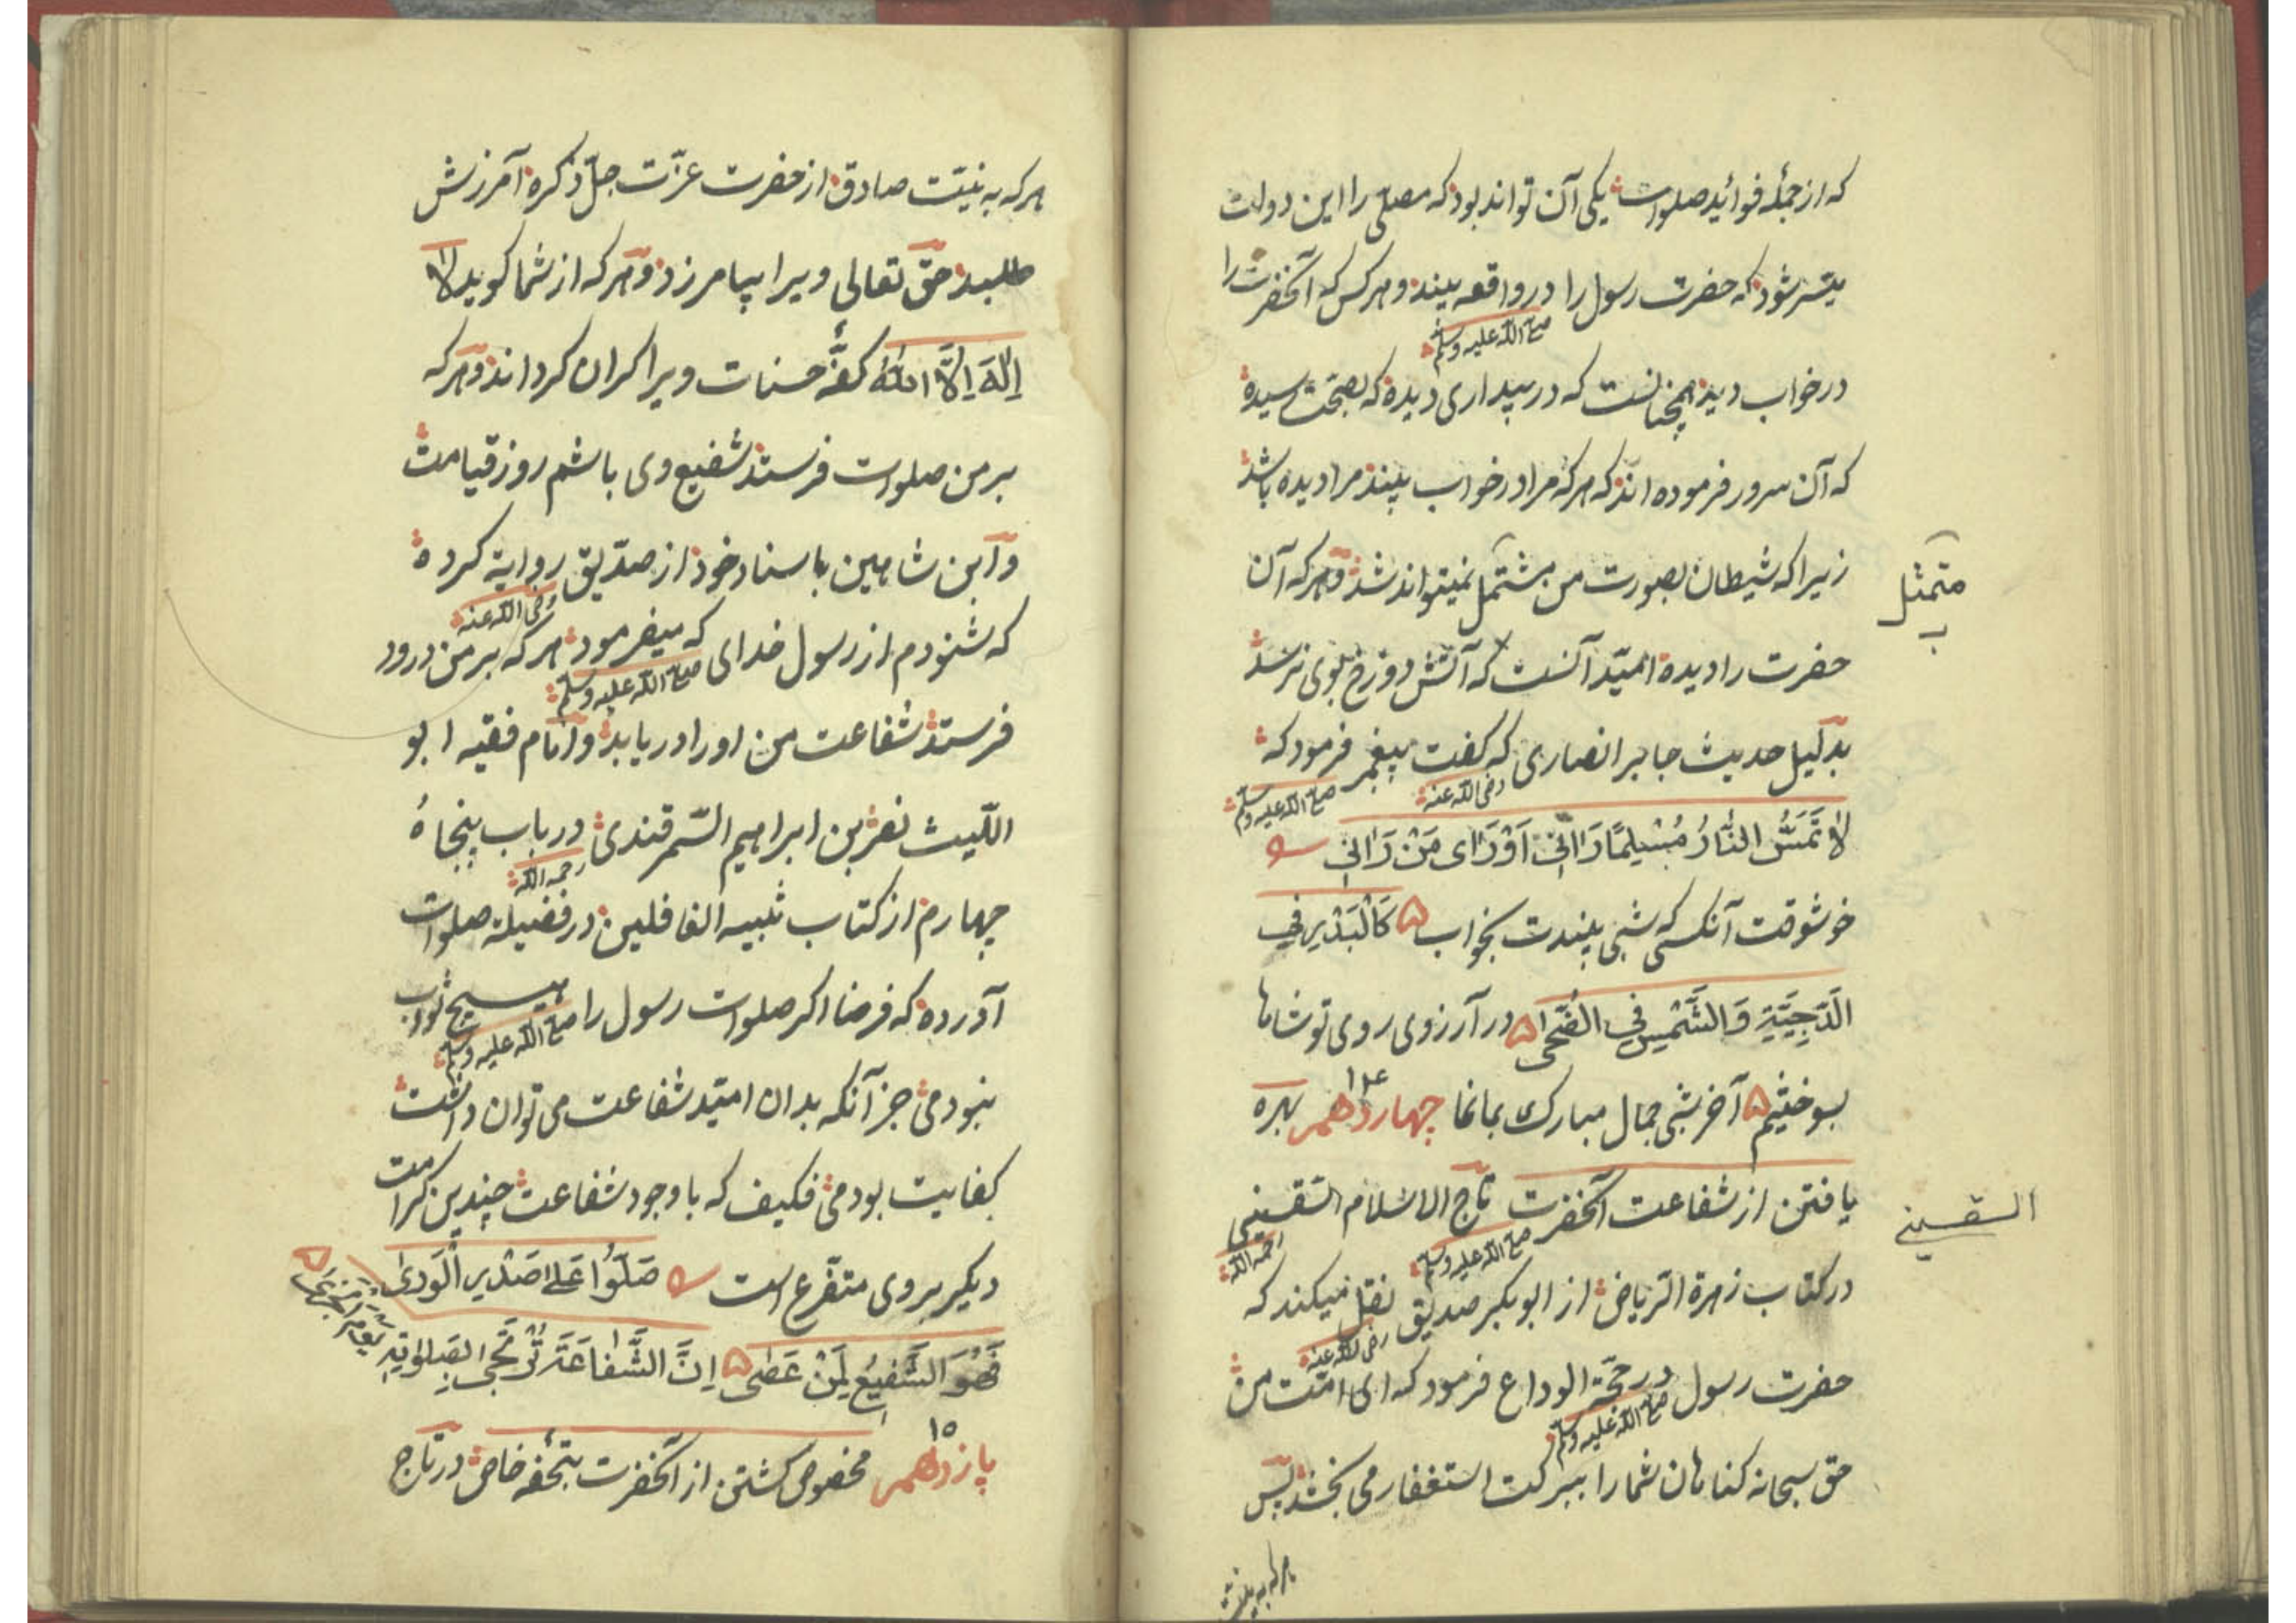 که از جملهٔ فوائد صلوات یکی آن تواند بود که مصلّی را این دولت
میسّر شود که حضرت رسول را صلی الله علیه وسلم در واقعه بیند و هر کس که آنحضرت را
در خواب دید همچنانست که در بیداری دیده که بصحّت رسیده
که آن سرور فرموده اند که هر که مرا در خواب بیند مرا دیده باشد
زیرا که شیطان بصورت من مشتمل نمیتواند شد و هر که آن
متمثل
حضرت را دیده امیّد آنست که آتش دوزخ بوی نرسد
بدلیل حدیث جابر انصاری رضی الله عنه که گفت پیغمبر صلی الله علیه وسلم فرمود که
لا تَمَسُّ النَّارُ مُسْلِمًا رَآنِی اَوْ رَای مَنْ رَآنِی
خوشوقت آنکسی که شبی بیندت بخواب کَالْبَدْرِ فِی
الدَّجِیَّةِ وَالشَّمْسِ فِی الضُّحَی در آرزوی روی تو شاها
بسوختیم آخر شبی جمال مبارک بما نما چهاردهم ۱۴ بهره
یافتن از شفاعت آنحضرت صلی الله علیه وسلم تاج الاسلام السقسینی رحمه الله
السقسینی
در کتاب زهرة الریاض از ابوبکر صدیق رضی الله عنه نقل میکند که
حضرت رسول صلی الله علیه وسلم در حجّة الوداع فرمود که ای امّت من
حق سبحانه کناهان شما را ببرکت استغفار می بخشد پس
هر که به نیت
هر که به نیّت صادق از حضرت عزّت جلّ ذکره آمرزش
طلبد حقّ تعالی ویرا بیامرزد و هر که از شما کوید لا
اِلٰهَ اِلَّا اللهُ کفّهٔ حسنات ویرا کران کرداند و هر که
بر من صلوات فرستد شفیع وی باشم روز قیامت
و ابن شاهین باسناد خود از صدّیق رضی الله عنه روایة کرده
که شنودم از رسول خدای صلی الله علیه وسلم که میفرمود هر که بر من درود
فرستد شفاعت من او را دریابد و امام فقیه ابو
اللّیث نصر بن ابراهیم السّمرقندی رحمه الله در باب پنجاهُ
چهارم از کتاب تنبیه الغافلین در فضیلة صلوات
آورده که فرضا اکر صلوات رسول را صلی الله علیه وسلم هیچ ثواب
نبودمی جز آنکه بدان امیّد شفاعت می توان داشت
کفایت بودمی فکیف که با وجود شفاعت چندین کرامت
دیکر بر وی متفرّع است صَلُّوا عَلَی صَدْرِ الْوَرَی
فَهُوَ الشَّفِیعُ لِمَنْ عَصَی اِنَّ الشَّفَاعَةَ تُرْتَجَی بِصَلٰوتِهِ
پانزدهم ۱۵ مخصوص کشتن از آنحضرت بتحفهٔ خاص در تاج